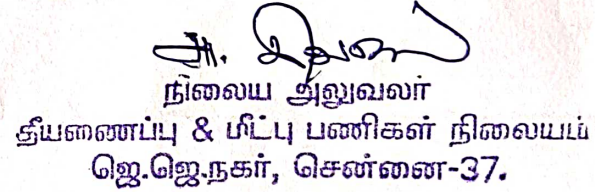 நிலைய அலுவலர்
தீயணைப்பு & மீட்பு பணிகள் நிலையம்
ஜெ.ஜெ.நகர், சென்னை-37.